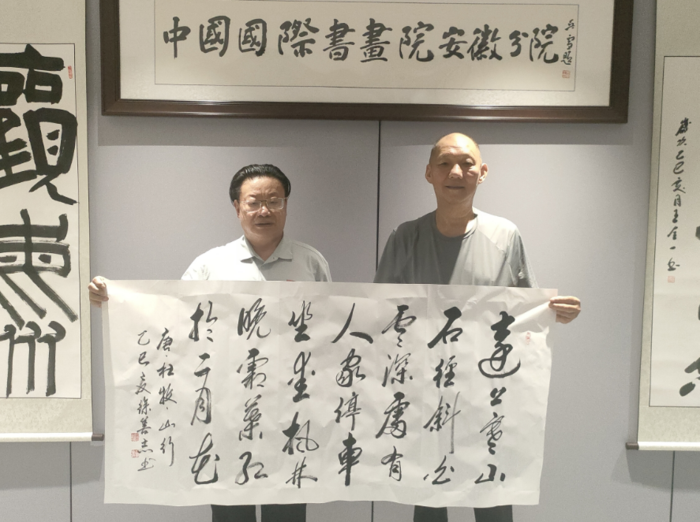 中國國際書畫院安徽分院
遠上寒山
石徑斜白
雲深處有
人家停車
坐愛楓林
晚霜葉紅
於二月花
唐·杜牧·山行
乙巳夏徐善志书
觀
歲次乙巳夏月王